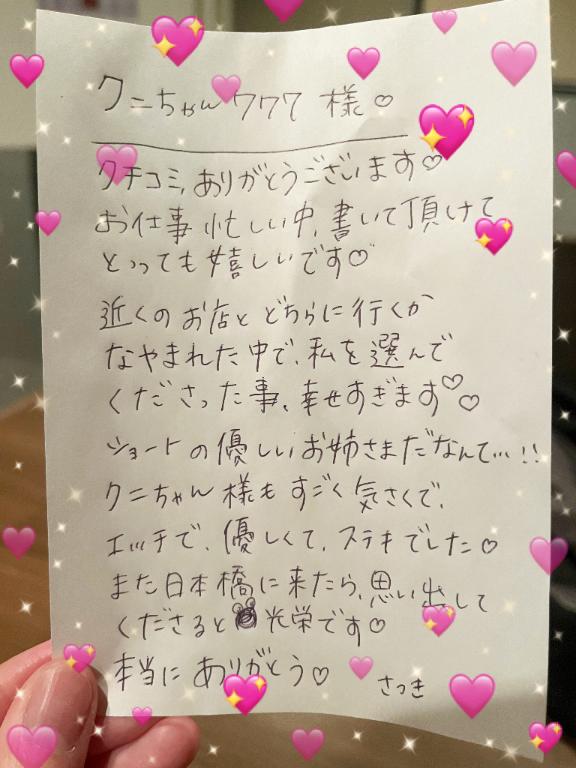 クニちゃん777 様♡
クチコミ、ありがとうございます♡
お仕事忙しい中、書いて頂けて
とっても嬉しいです♡
近くのお店とどちらに行くか
なやまれた中で、私を選んで
くださった事、幸せすぎます♡♡
ショートの優しいお姉さまだなんて…!!
クニちゃん様もすごく気さくで、
エッチで、優しくて、ステキでした♡
また日本橋に来たら、思い出して
くださると光栄です♡
本当にありがとう♡
さつき